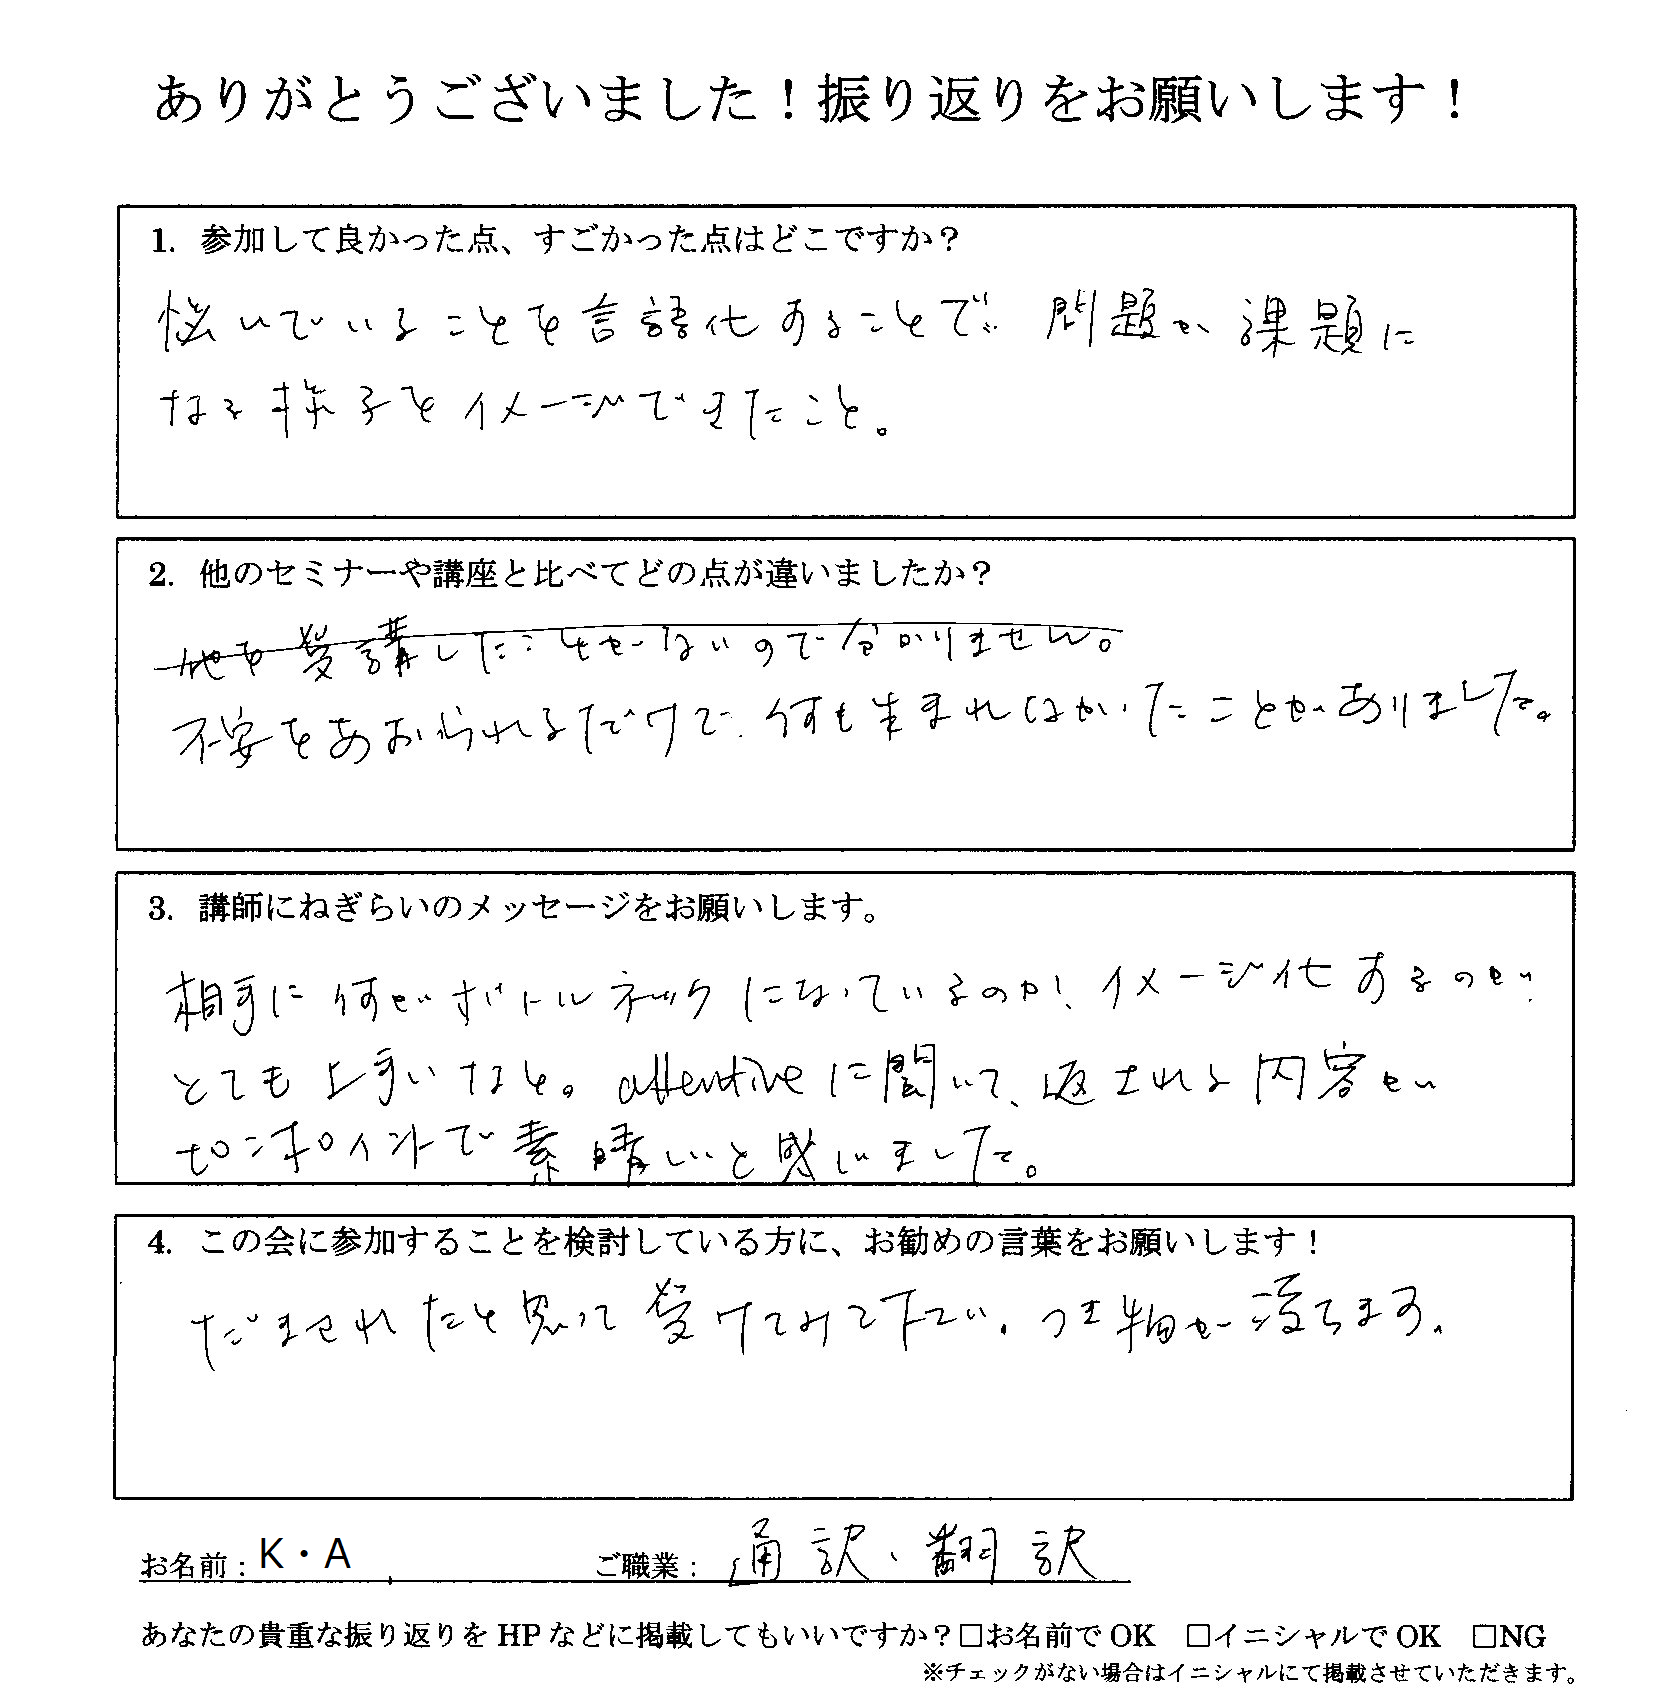 ありがとうございました！振り返りをお願いします！
1. 参加して良かった点、すごかった点はどこですか？
悩いでいることを言語化することで、問題が課題に
なる様子をイメージできたこと。
2. 他のセミナーや講座と比べてどの点が違いましたか？
他を受講したことがないので分かりません。
不安をあおられるだけで、何も生まれなかったことがありました。
3. 講師にねぎらいのメッセージをお願いします。
相手に何がボトルネックになっているのか、イメージ化するのが
とても上手いなと。attentiveに聞いて、返される内容が
ピンポイントで素晴しいと感じました。
4. この会に参加することを検討している方に、お勧めの言葉をお願いします！
だまされたと思って受けてみて下さい。つき物が落ちます。
お名前：K・A ご職業：通訳、翻訳
あなたの貴重な振り返りを HP などに掲載してもいいですか？□お名前で OK □イニシャルで OK □NG
※チェックがない場合はイニシャルにて掲載させていただきます。